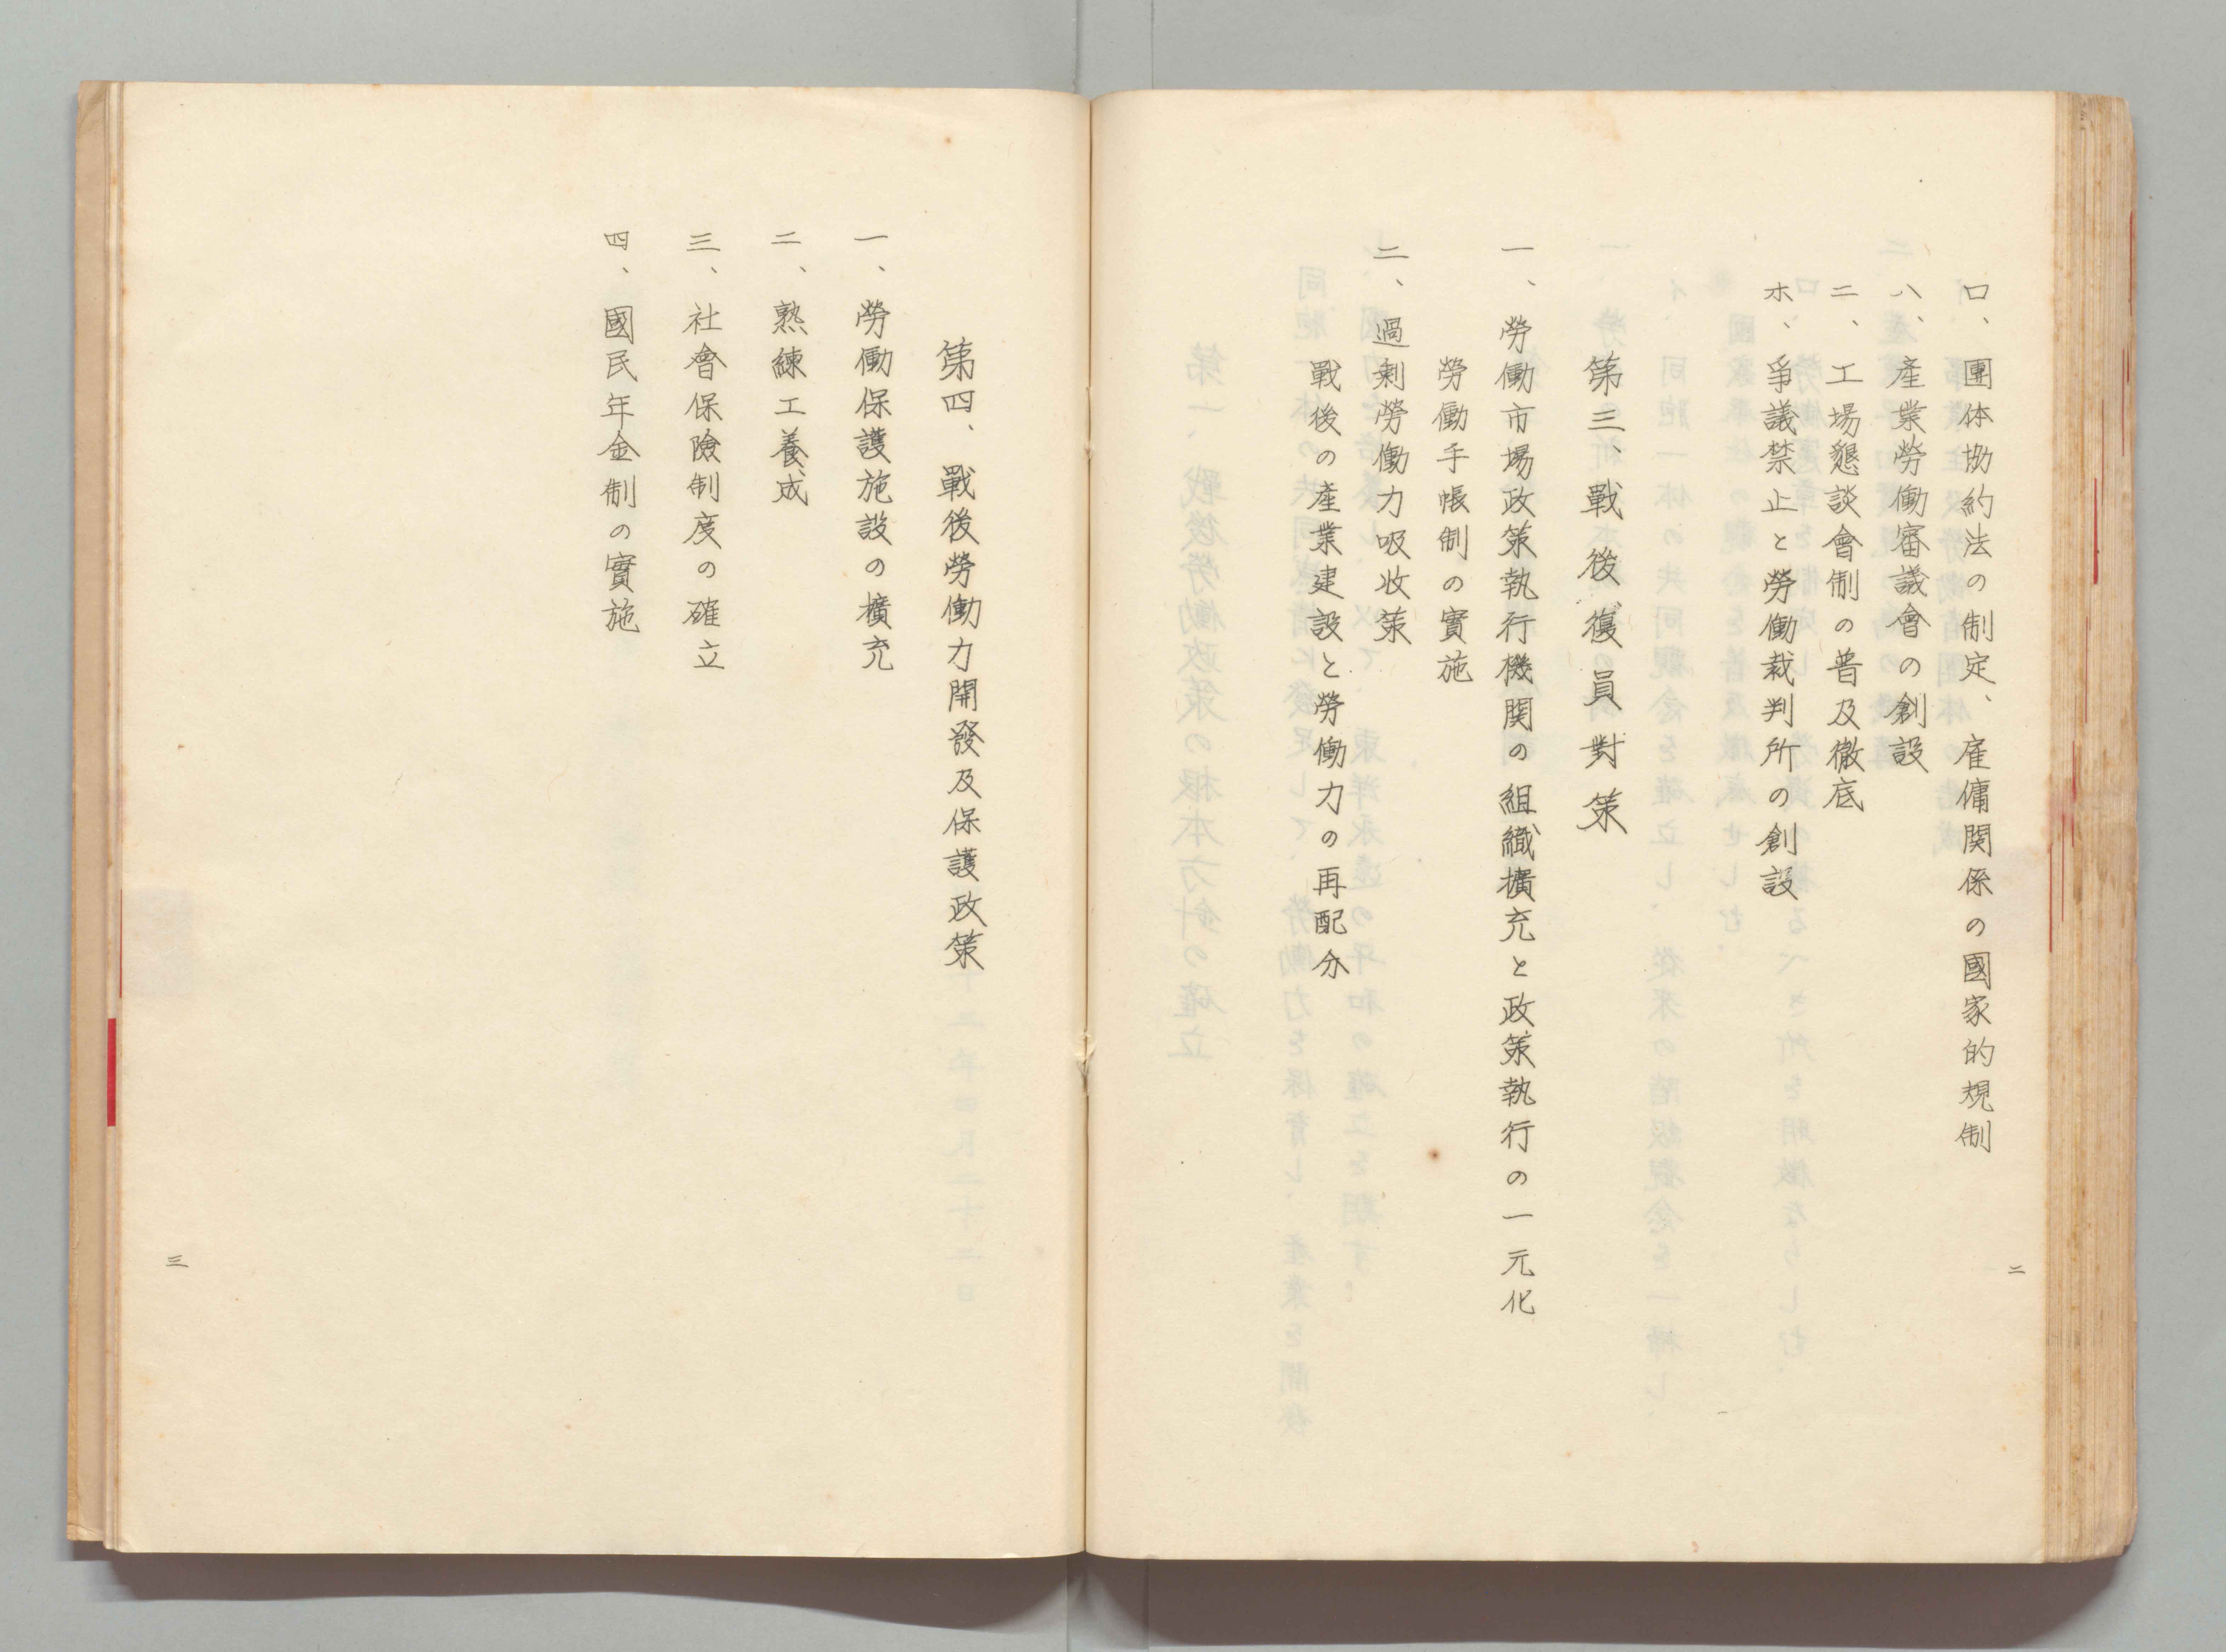 ロ、團体協約法の制定、雇傭関係の國家的規制
ハ、產業勞働審議會の創設
ニ、工場懇談會制の普及徹底
ホ、爭議禁止と勞働裁判所の創設
第三、戰後復員對策
一、勞働市場政策執行機関の組織擴充と政策執行の一元化
勞働手帳制の實施
二、過剩勞働力吸收策
戰後の產業建設と勞働力の再配分
二
第四、戰後勞働力開發及保護政策
一、勞働保護施設の擴充
二、熟練工養成
三、社會保險制度の確立
四、國民年金制の實施
三